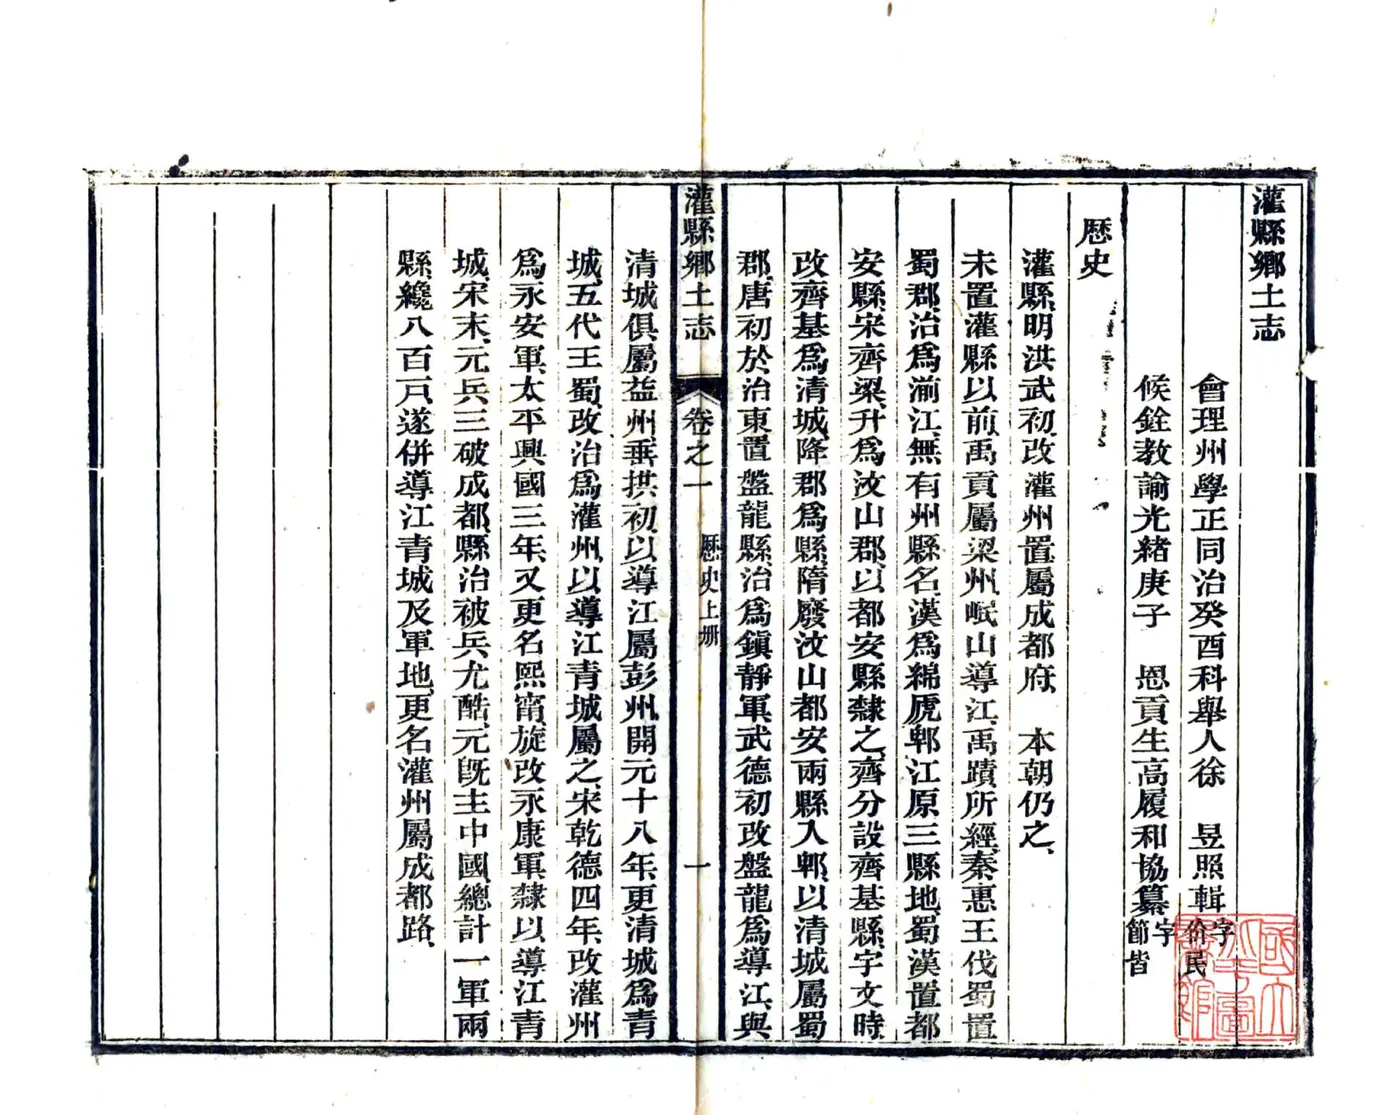 灌縣鄉土志
會理州學正同治癸酉科舉人徐　昱照輯字介民
候銓教諭光緒庚子　恩貢生高履和協纂字節皆
歷史
灌縣、明洪武初、改灌州置屬成都府、　本朝仍之、
未置灌縣以前、禹貢屬梁州、岷山導江、禹蹟所經、秦惠王伐蜀置
蜀郡、治爲湔江、無有州縣名、漢爲綿虒郫江原三縣地、蜀漢置都
安縣、宋齊梁、升爲汶山郡、以都安縣隸之、齊分設齊基縣、宇文時、
改齊基爲清城、降郡爲縣、隋廢汶山都安兩縣入郫、以清城屬蜀
郡、唐初於治東置盤龍縣、治爲鎭靜軍、武德初改盤龍爲導江、與
灌縣鄉土志　卷之一　歷史上册　一
清城俱屬益州、垂拱初、以導江屬彭州、開元十八年、更清城爲青
城、五代王蜀、改治爲灌州、以導江青城屬之、宋乾德四年、改灌州
爲永安軍、太平興國三年、又更名熙甯、旋改永康軍、隸以導江青
城、宋末、元兵三破成都、縣治被兵尤酷、元旣主中國、總計一軍兩
縣、纔八百戸、遂併導江青城及軍地、更名灌州屬成都路、
國立北平圖